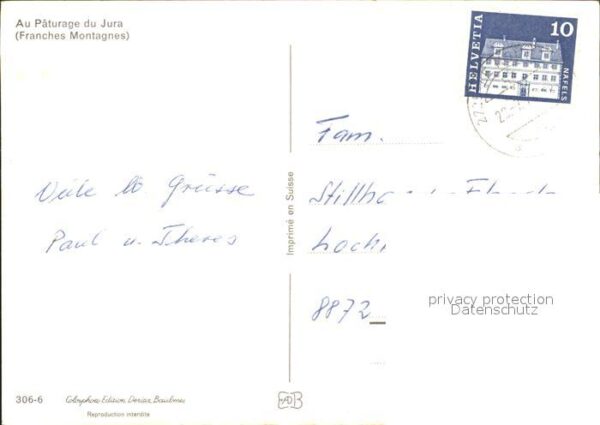 Au Pâturage du Jura
(Franches Montagnes)
HELVETIA
10
NÄFELS
Fam.
Viele lb Grüsse
Paul u. Theres
Imprimé en Suisse
8872
privacy protection
Datenschutz
306-6
Colorphoto Edition Deriaz Baulmes
Reproduction interdite